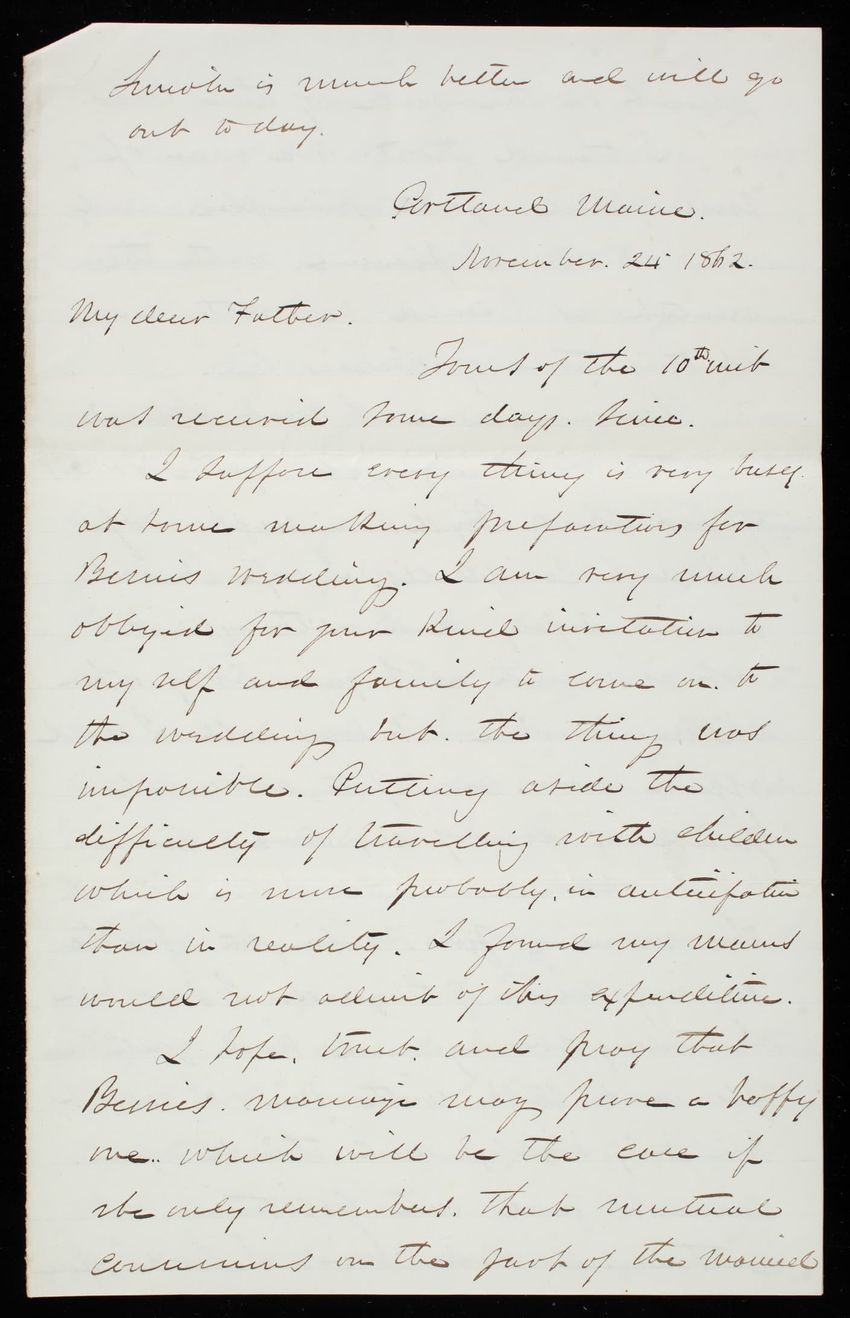 Lincoln is much better and will go
out to day.
Portland Maine.
November. 24 1862.
My dear Father.
Yours of the 10th inst
was received some days. since.
I suppose every thing is very busy
at home making preparations for
Bessies wedding. I am very much
obliged for your kind invitation to
my self and family to come on. to
the wedding but. the thing was
impossible. Putting aside the
difficulty of travelling with children
which is more probably. in anticipation
than in reality. I found my means
would not admit of this expenditure.
I hope. trust. and pray that
Bessies. marriage may prove a happy
one.. which will be the case if
she only remembers. that mutual
concessions on the part of the married